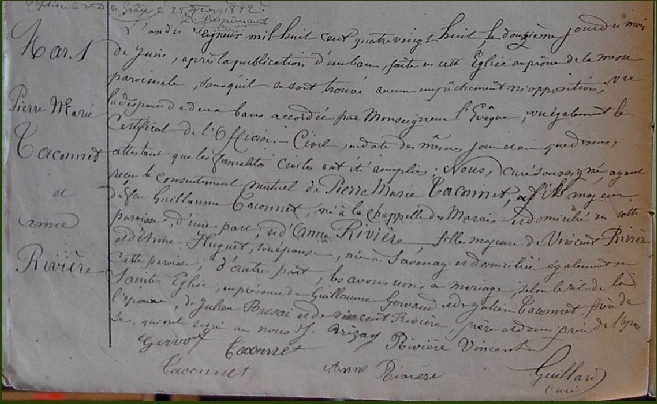 Mar. 1
Pierre Marie
Taconnet
et
Anne
Rivière
L'an de grâce mil huit cent quatre vingt huit, le douzième jour du mois
de Juin, après la publication d'un ban, faite en cette Église au prône de la messe
paroissiale, sans qu'il se soit trouvé aucun empêchement ni opposition, vu
la dispense de deux bans accordée par Monseigneur l'Évêque, vu également le
Certificat de l'Officier Civil, en date du même jour et an que dessus,
attestant que les formalités civiles ont été remplies; Nous, curé soussigné, ayant
reçu le consentement mutuel de Pierre Marie Taconnet, fils majeur
de feu Guillaume Taconnet, né à la Chappelle des Marais et domicilié en cette
paroisse, d'une part; et d'Anne Rivière, fille majeure de Vincent Rivière
et d'Anne Huguet, née à Savenay et domiciliée également en
cette paroisse, d'autre part, les avons unis en mariage, selon le rit de la
Sainte Église, en présence de Guillaume Gervaud et de Julien Taconnet frère de
l'époux, de Julien et de Vincent Rivière, père et de
qui ont signé avec nous J. Brizay
Gervot Taconnet Rivière Vincent
Taconnet Anne Rivière Guillard
curé